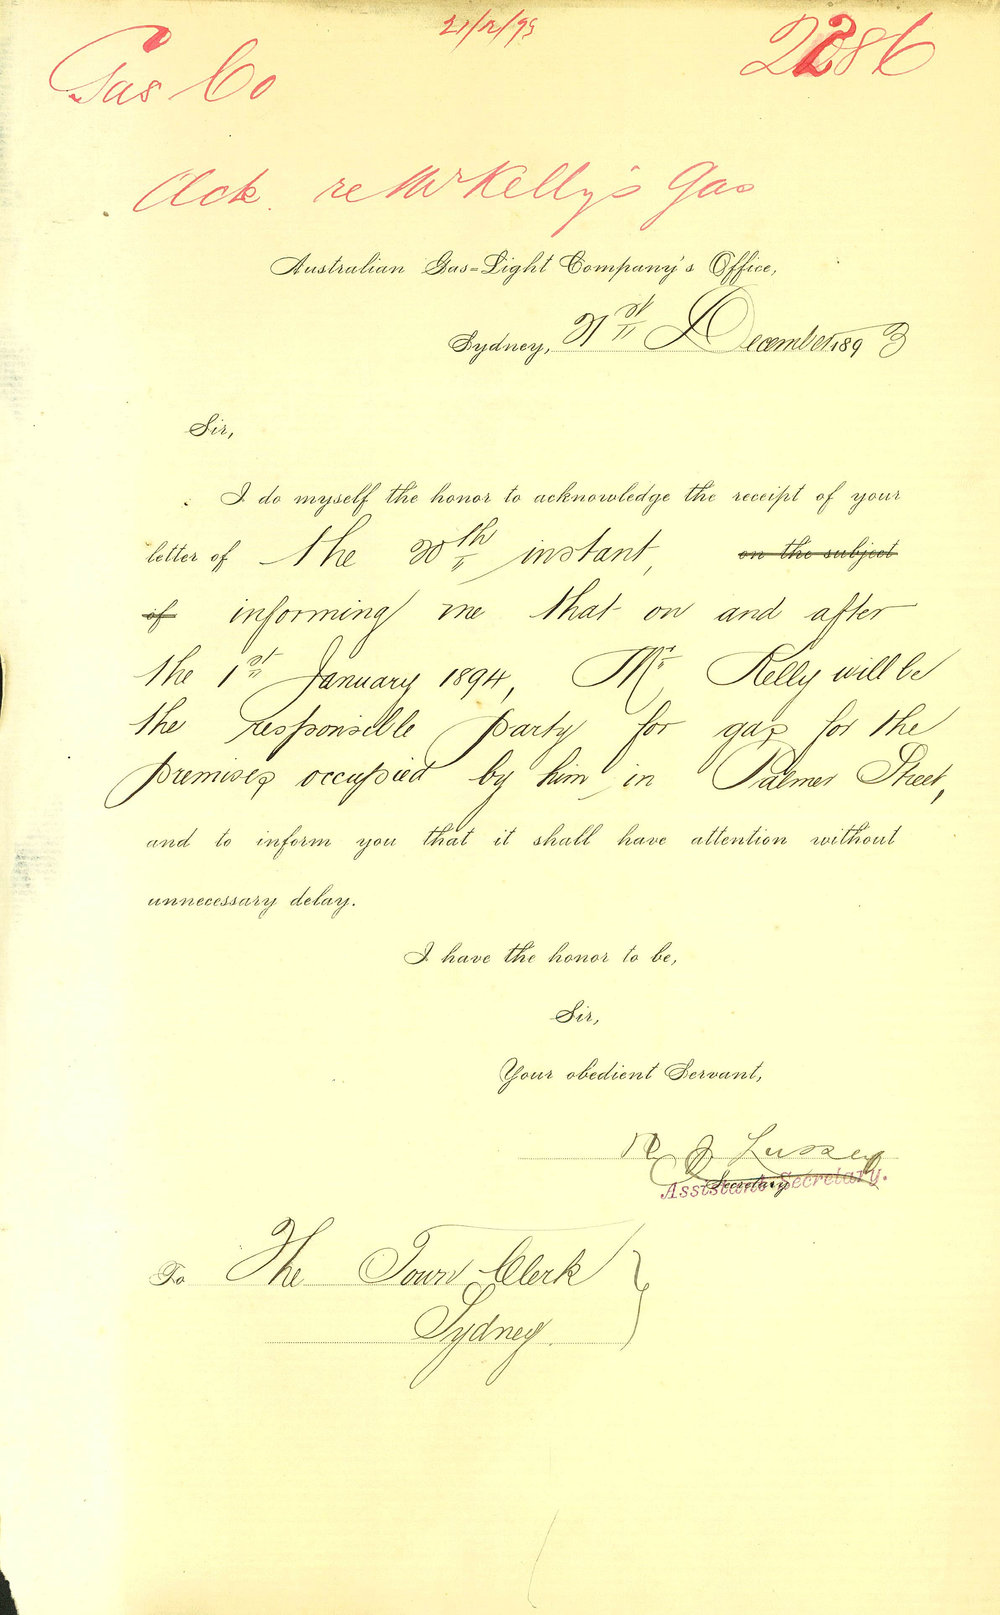 21/12/93
Gas Co
2286
Ack. re Mr Kelly's Gas
Australian Gas-Light Company's Office,
Sydney, 21st December 1893
Sir,
I do myself the honor to acknowledge the receipt of your
letter of the 20th instant, on the subject
of informing me that on and after
the 1st January 1894, Mr Kelly will be
the responsible party for gas for the
premises occupied by him in Palmer Street,
and to inform you that it shall have attention without
unnecessary delay.
I have the honor to be,
Sir,
Your obedient Servant,
Secretary
Assistant Secretary.
To The Town Clerk
Sydney.